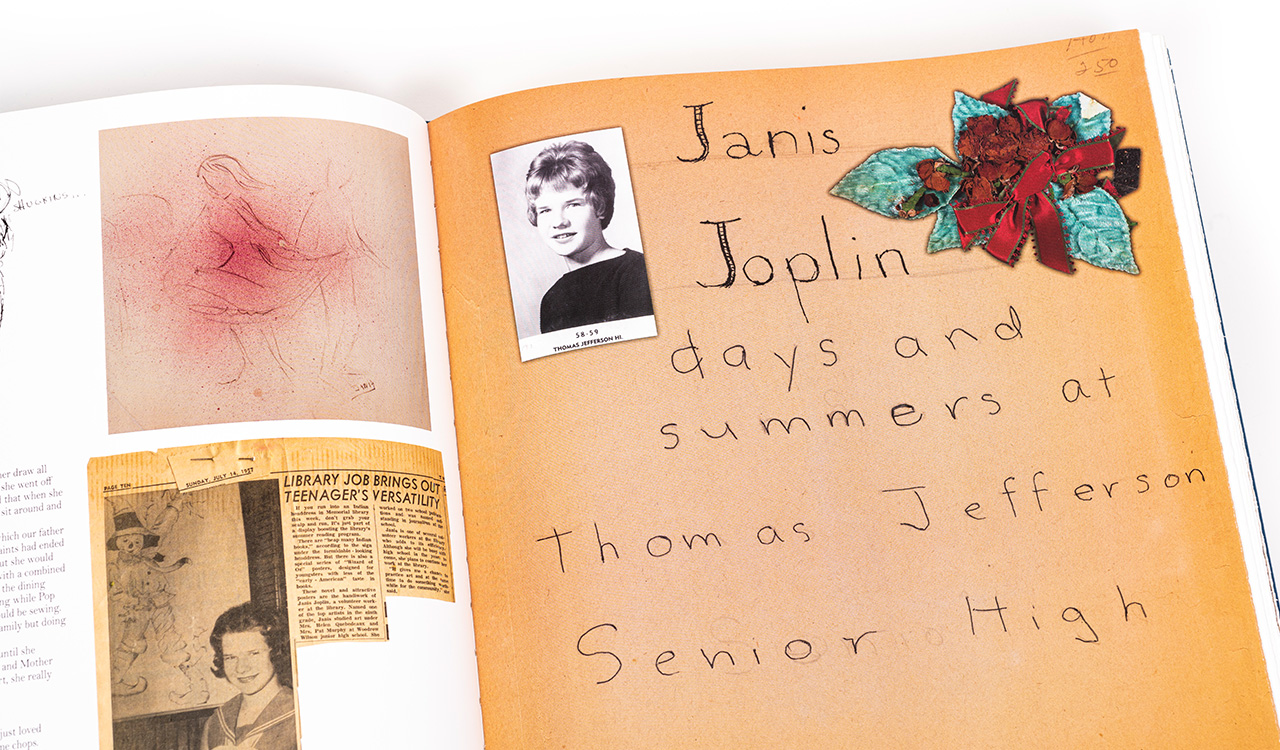 HUGKINS...
her draw all
she went off
d that when she
sit around and
which our father
aints had ended
but she would
with a combined
the dining
ng while Pop
ould be sewing.
family but doing
until she
and Mother
rt, she really
just loved
ne chops.
PAGE TEN
SUNDAY, JULY 14, 1957
LIBRARY JOB BRINGS OUT
TEENAGER'S VERSATILITY
If you run into an Indian
headdress in Memorial library
this week, don't grab your
scalp and run. It's just part of
a display boosting the library's
summer reading program.
There are "heap many Indian
books," according to the sign
under the formidable-looking
headdress. But there is also a
special series of "Wizard of
Oz" posters, designed for
youngsters with less of the
"early-American" taste in
books.
These novel and attractive
posters are the handiwork of
Janis Joplin, a volunteer work-
er at the library. Named one
of the top artists in the ninth
grade, Janis studied art under
Mrs. Helen
Mrs. Pat Murphy at Woodrow
Wilson junior high school. She
worked on two school
tions and was named
standing in journalism
school.
Janis is one of several
unteer workers at the library
who adds to its
Although she will be
high school in the
come, she plans to continue
work at the library.
"It gives me a chance
practice art and at the
time to do something
while for the community,"
said.
58-59
THOMAS JEFFERSON HI.
250
Janis
Joplin
days and
summers at
Thomas Jefferson
Senior High